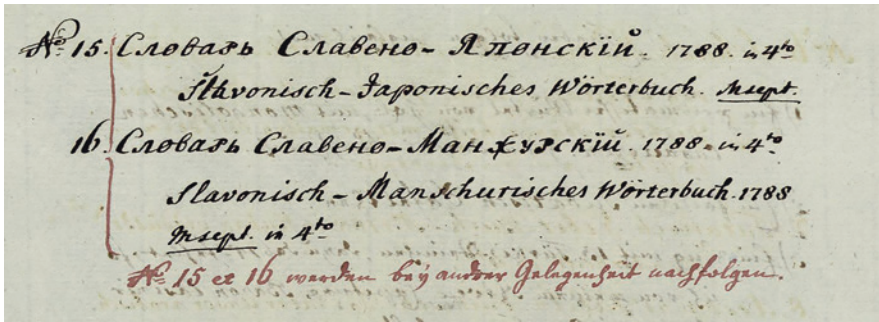 No 15. Словарь Славено-Японскій. 1788. in 4to
Slavonisch-Japonisches Wörterbuch. Mscpt.
16. Словарь Славено-Манжурскій. 1788. in 4to
Slavonisch-Manschurisches Wörterbuch. 1788
Mscpt. in 4to
No 15 et 16 werden bey andrer Gelegenheit nachfolgen.